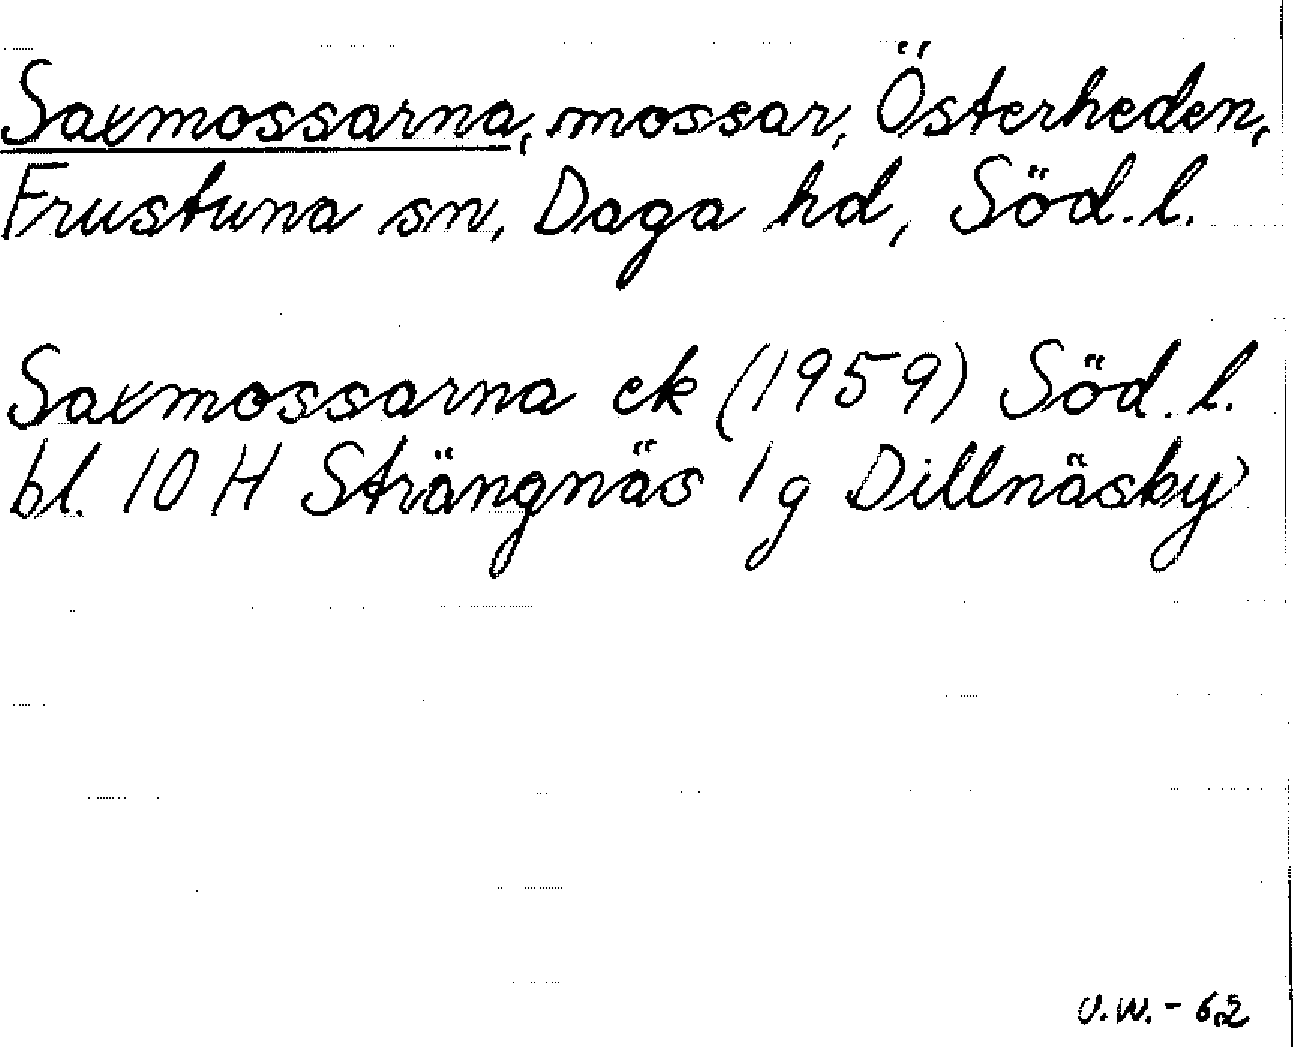 Saxmossarna, mossar, Österheden,
Frustuna sn, Daga hd, Söd. l.
Saxmossarna ek (1959) Söd. l.
bl. 10 H Strängnäs 1 g Dillnäsby
U.W. - 62